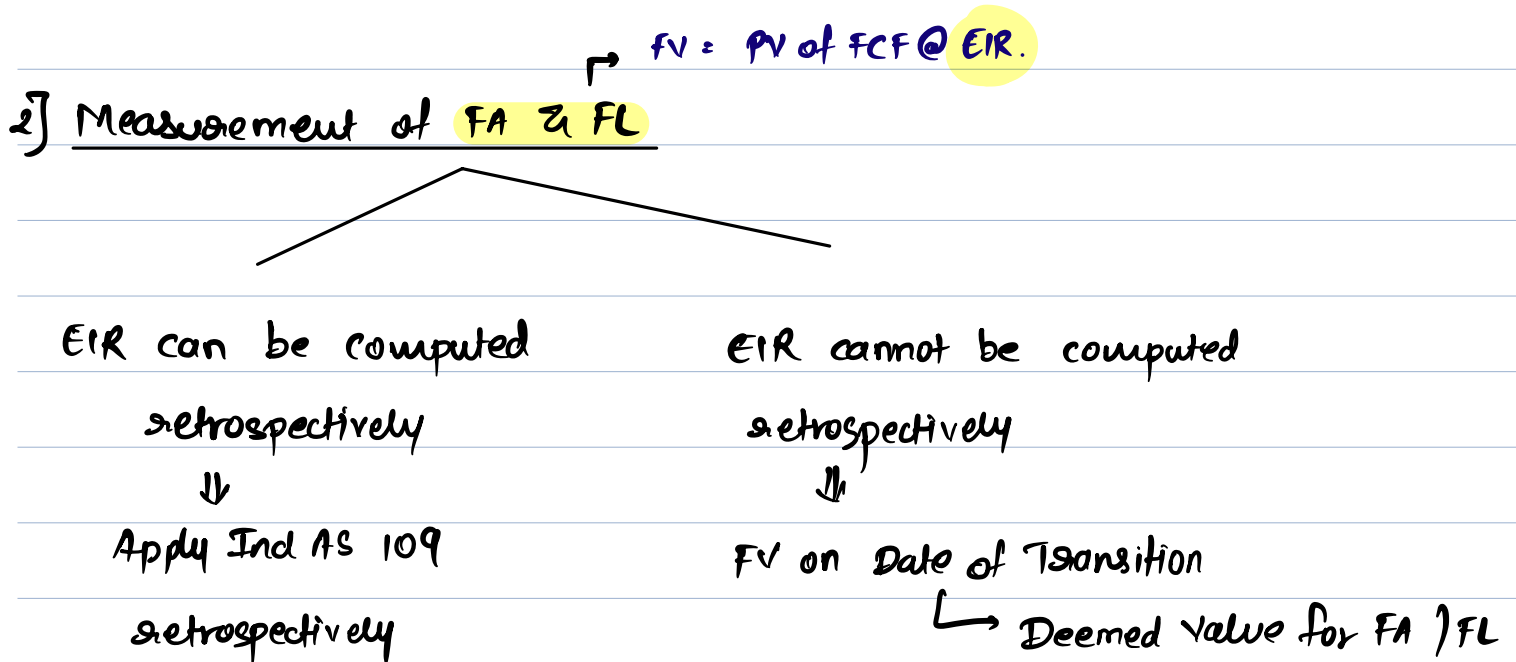 FV = PV of FCF @ EIR.
2] Measurement of FA & FL
EIR can be computed
retrospectively
⇓
Apply Ind AS 109
retrospectively
EIR cannot be computed
retrospectively
⇓
FV on Date of Transition
Deemed value for FA / FL